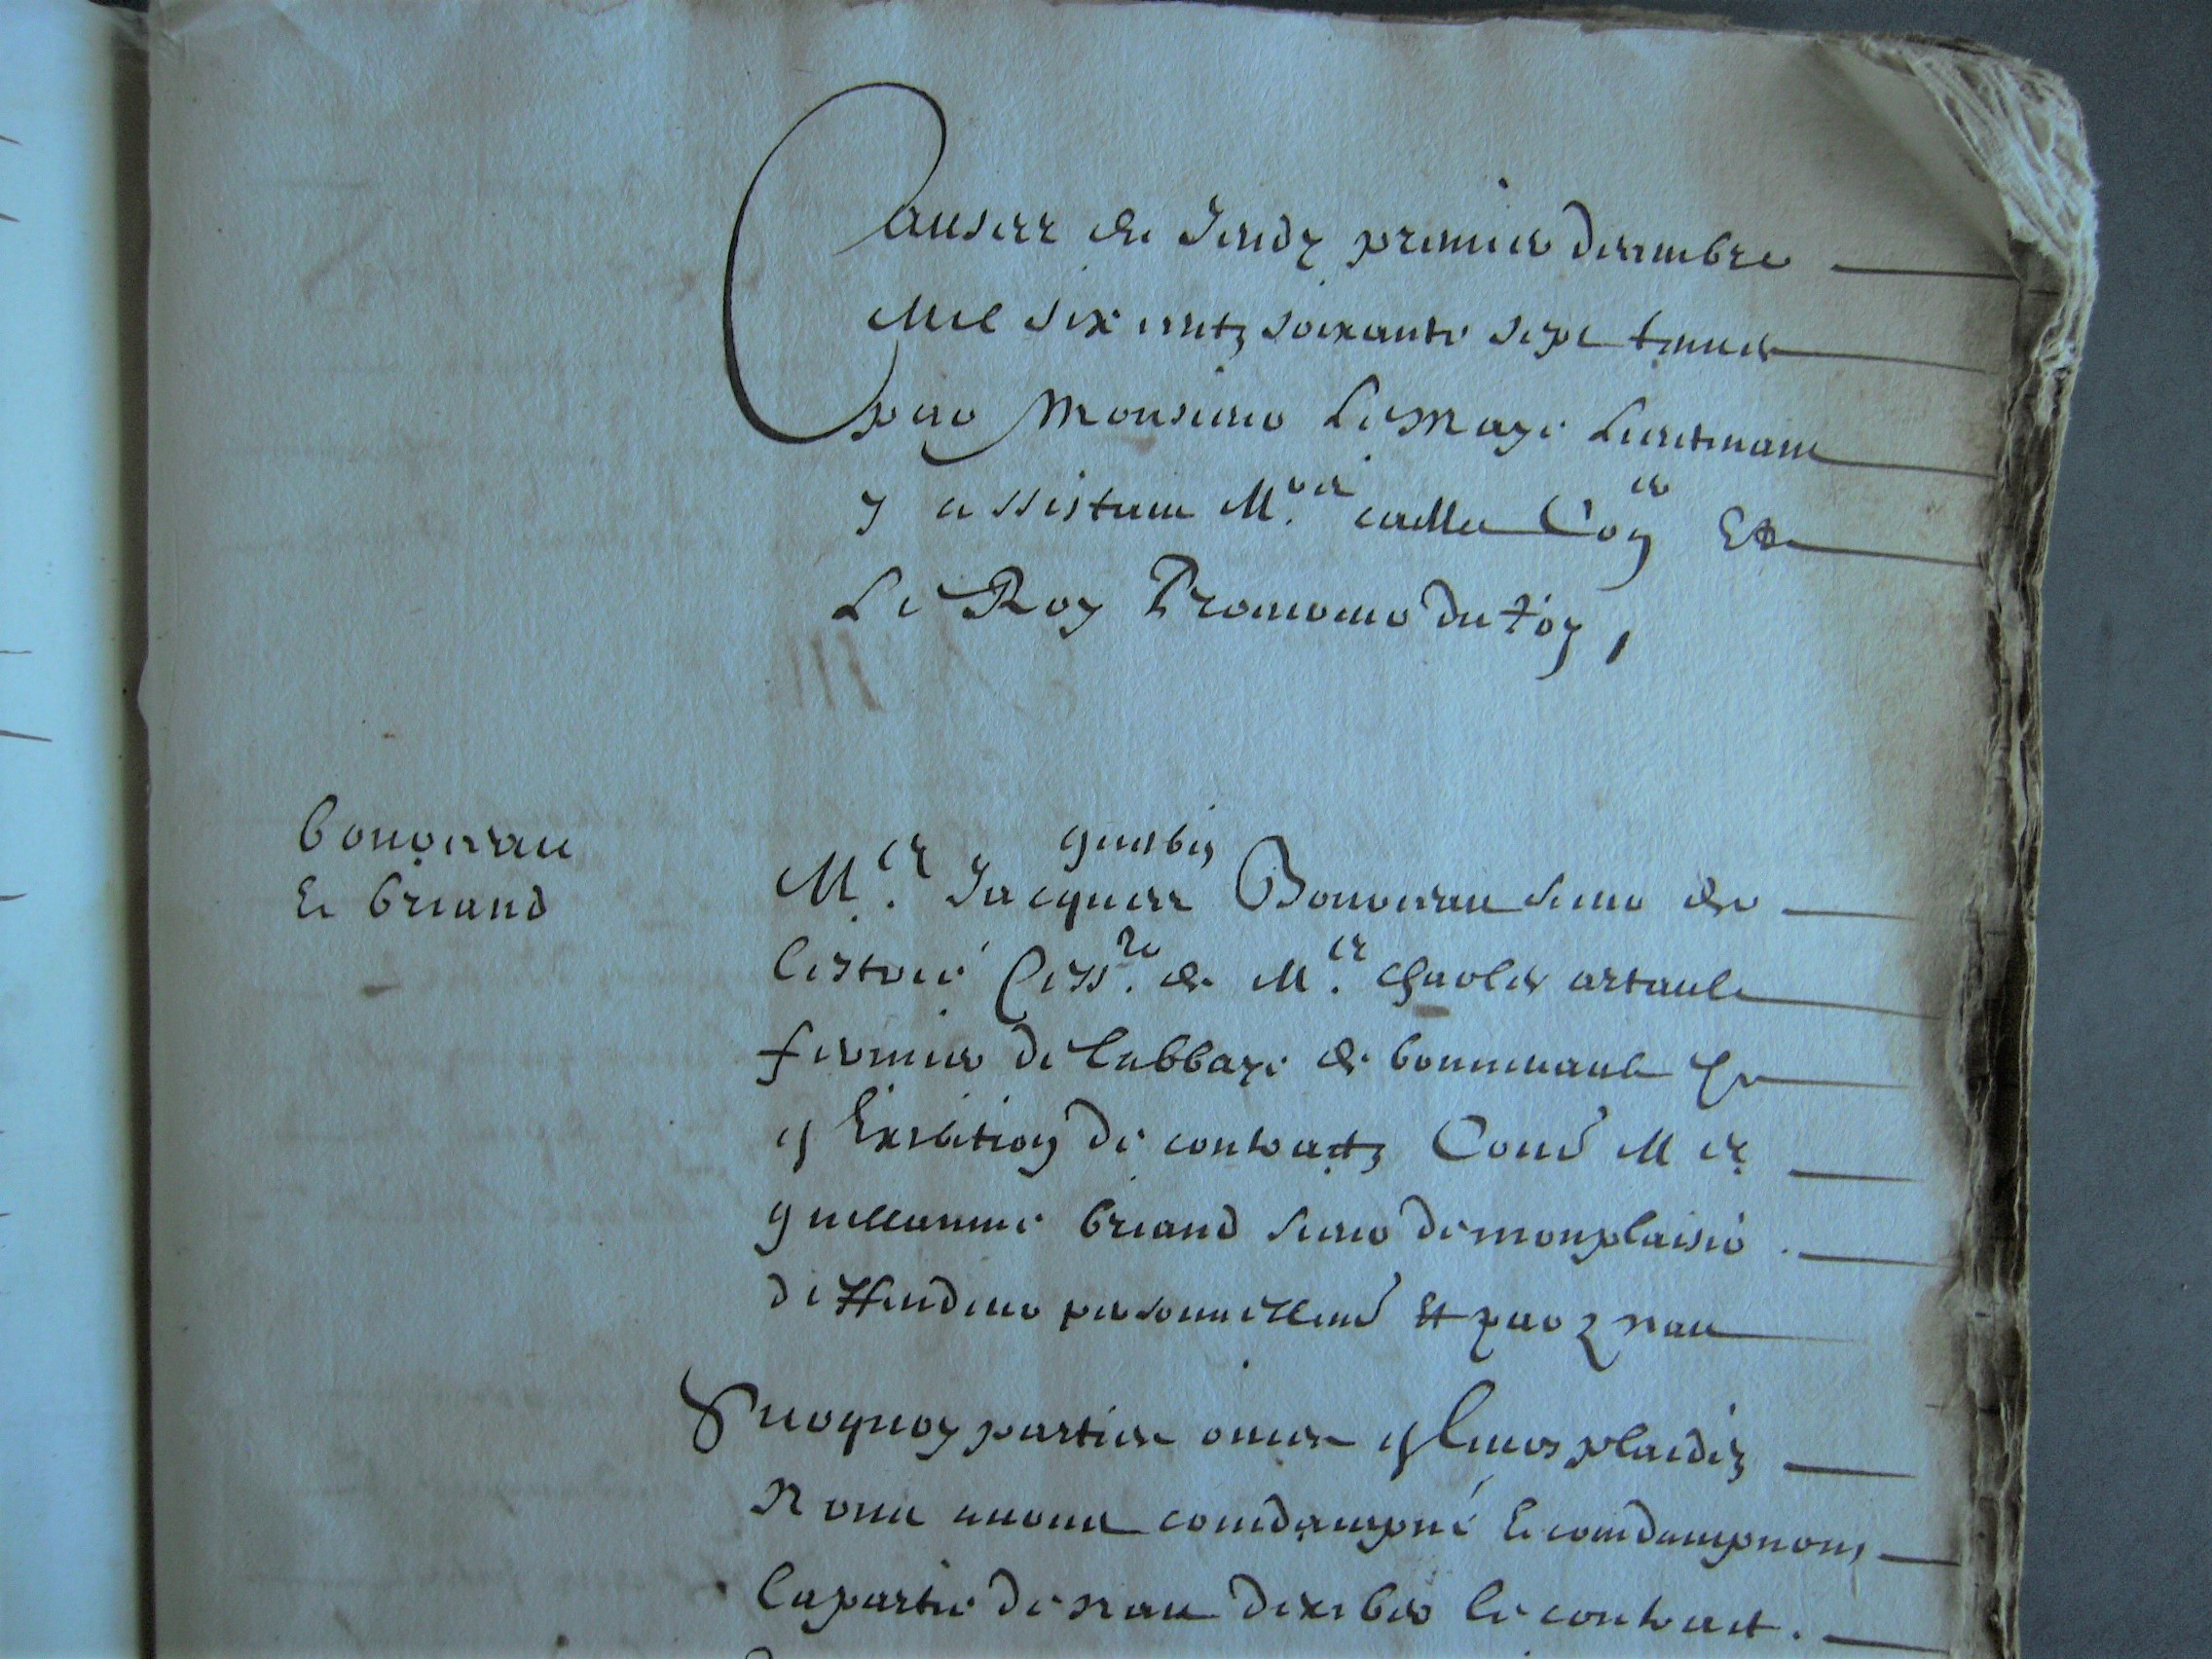 Causes de Jeudy premier decembre
mil six centz soixante sept tenues
par Monsieur Le Maye Lieutenant
y assistant Mres Coner Et
Le Roy Procureur du Roy,
bonneau
Et briand
Mes Jacques Bonneau sieur de
Cessre de Me Charles artault
fermier de labbaye de bonnevault
en Exibition de contractz Contre Me
guillaume briand sieur de monplaisir.
deffendeur personnellement Et par
Surquoy parties ouies en leurs plaidez
Nous avons condampné Et condampnons
la partie de dexiber le contract.